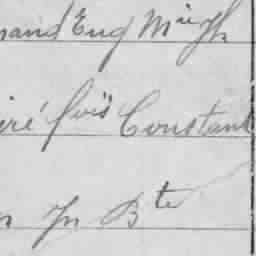 mand Eug M
iré fois Constant
n Jn Bte